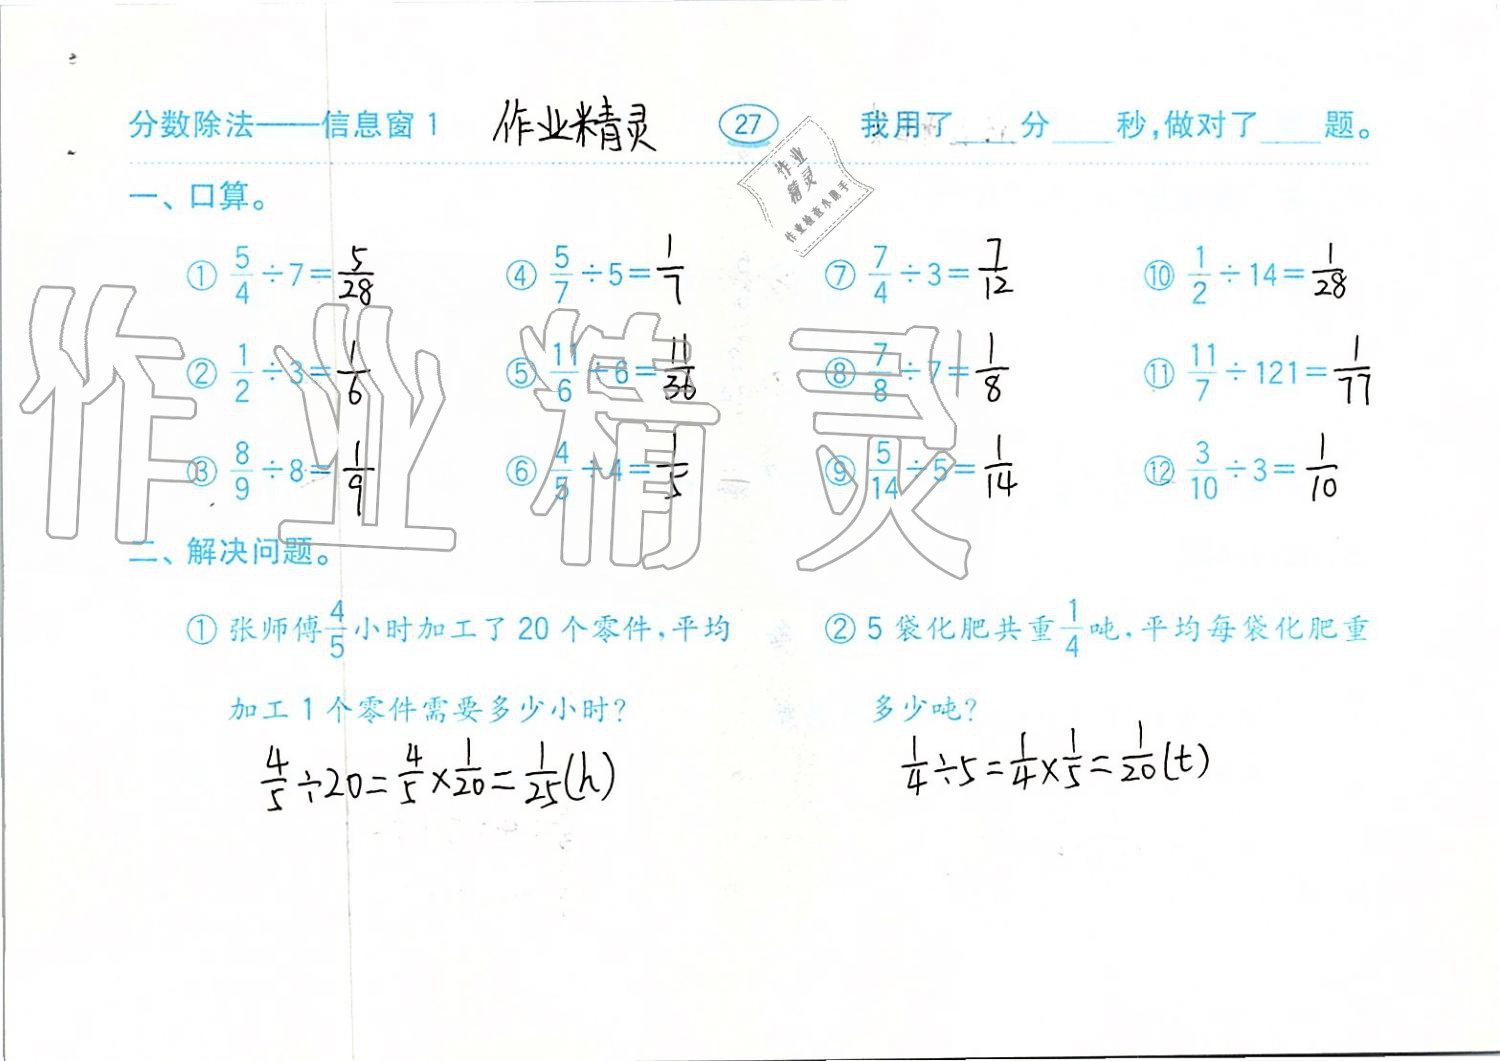 分数除法——信息窗1 作业精灵 27 我用了____分____秒,做对了____题。
作业
精灵
作业检查小助手
一、口算。
① 5/4÷7=5/28 ④ 5/7÷5=1/7 ⑦ 7/4÷3=7/12 ⑩ 1/2÷14=1/28
② 1/2÷3=1/6 ⑤ 11/6÷6=11/36 ⑧ 7/8÷7=1/8 ⑪ 11/7÷121=1/77
③ 8/9÷8=1/9 ⑥ 4/5÷4=1/5 ⑨ 5/14÷5=1/14 ⑫ 3/10÷3=1/10
作业精灵
二、解决问题。
① 张师傅4/5小时加工了20个零件,平均
加工1个零件需要多少小时?
4/5÷20=4/5×1/20=1/25(h)
② 5袋化肥共重1/4吨,平均每袋化肥重
多少吨?
1/4÷5=1/4×1/5=1/20(t)